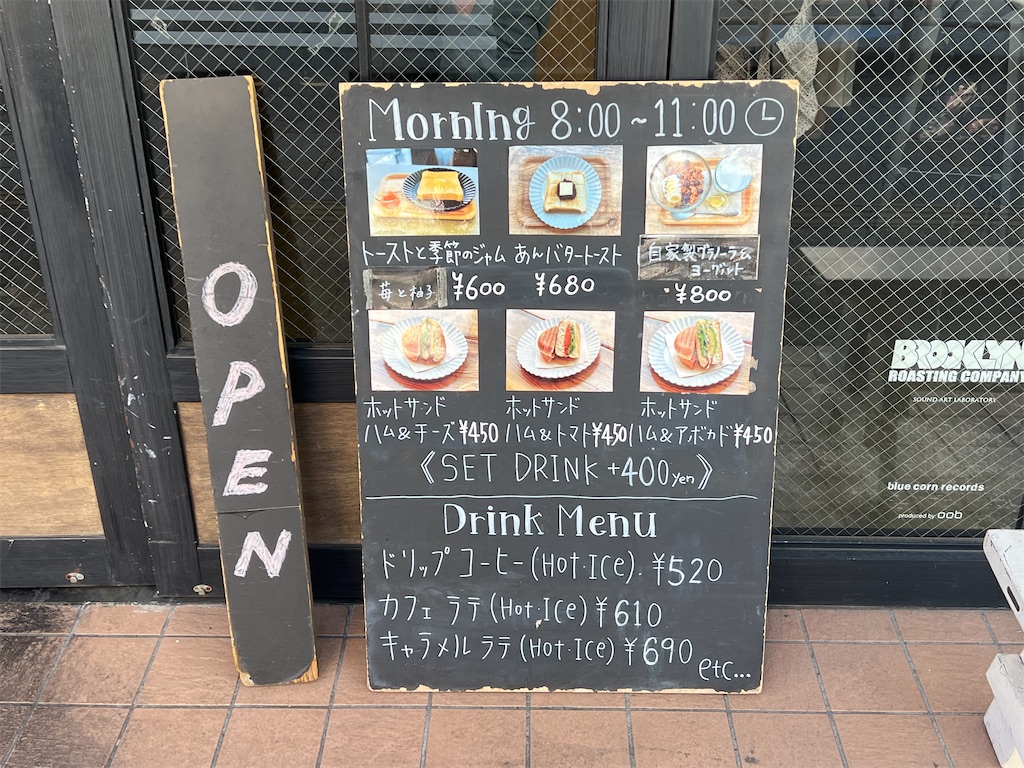 OPEN
MornIng 8:00～11:00
トーストと季節のジャム
苺と柚子
¥600
あんバタートースト
¥680
自家製グラノーラム
ヨーグルト
¥800
ホットサンド
ハム&チーズ¥450
ホットサンド
ハム&トマト¥450
ホットサンド
ハム&アボカド¥450
《SET DRINK +400yen》
Drink Menu
ドリップコーヒー(Hot・Ice). ¥520
カフェラテ(Hot・Ice)¥610
キャラメルラテ(Hot・Ice)¥690
etc...
BROOKLYN
ROASTING COMPANY
SOUND ART LABORATORY
blue corn records
produced by oob